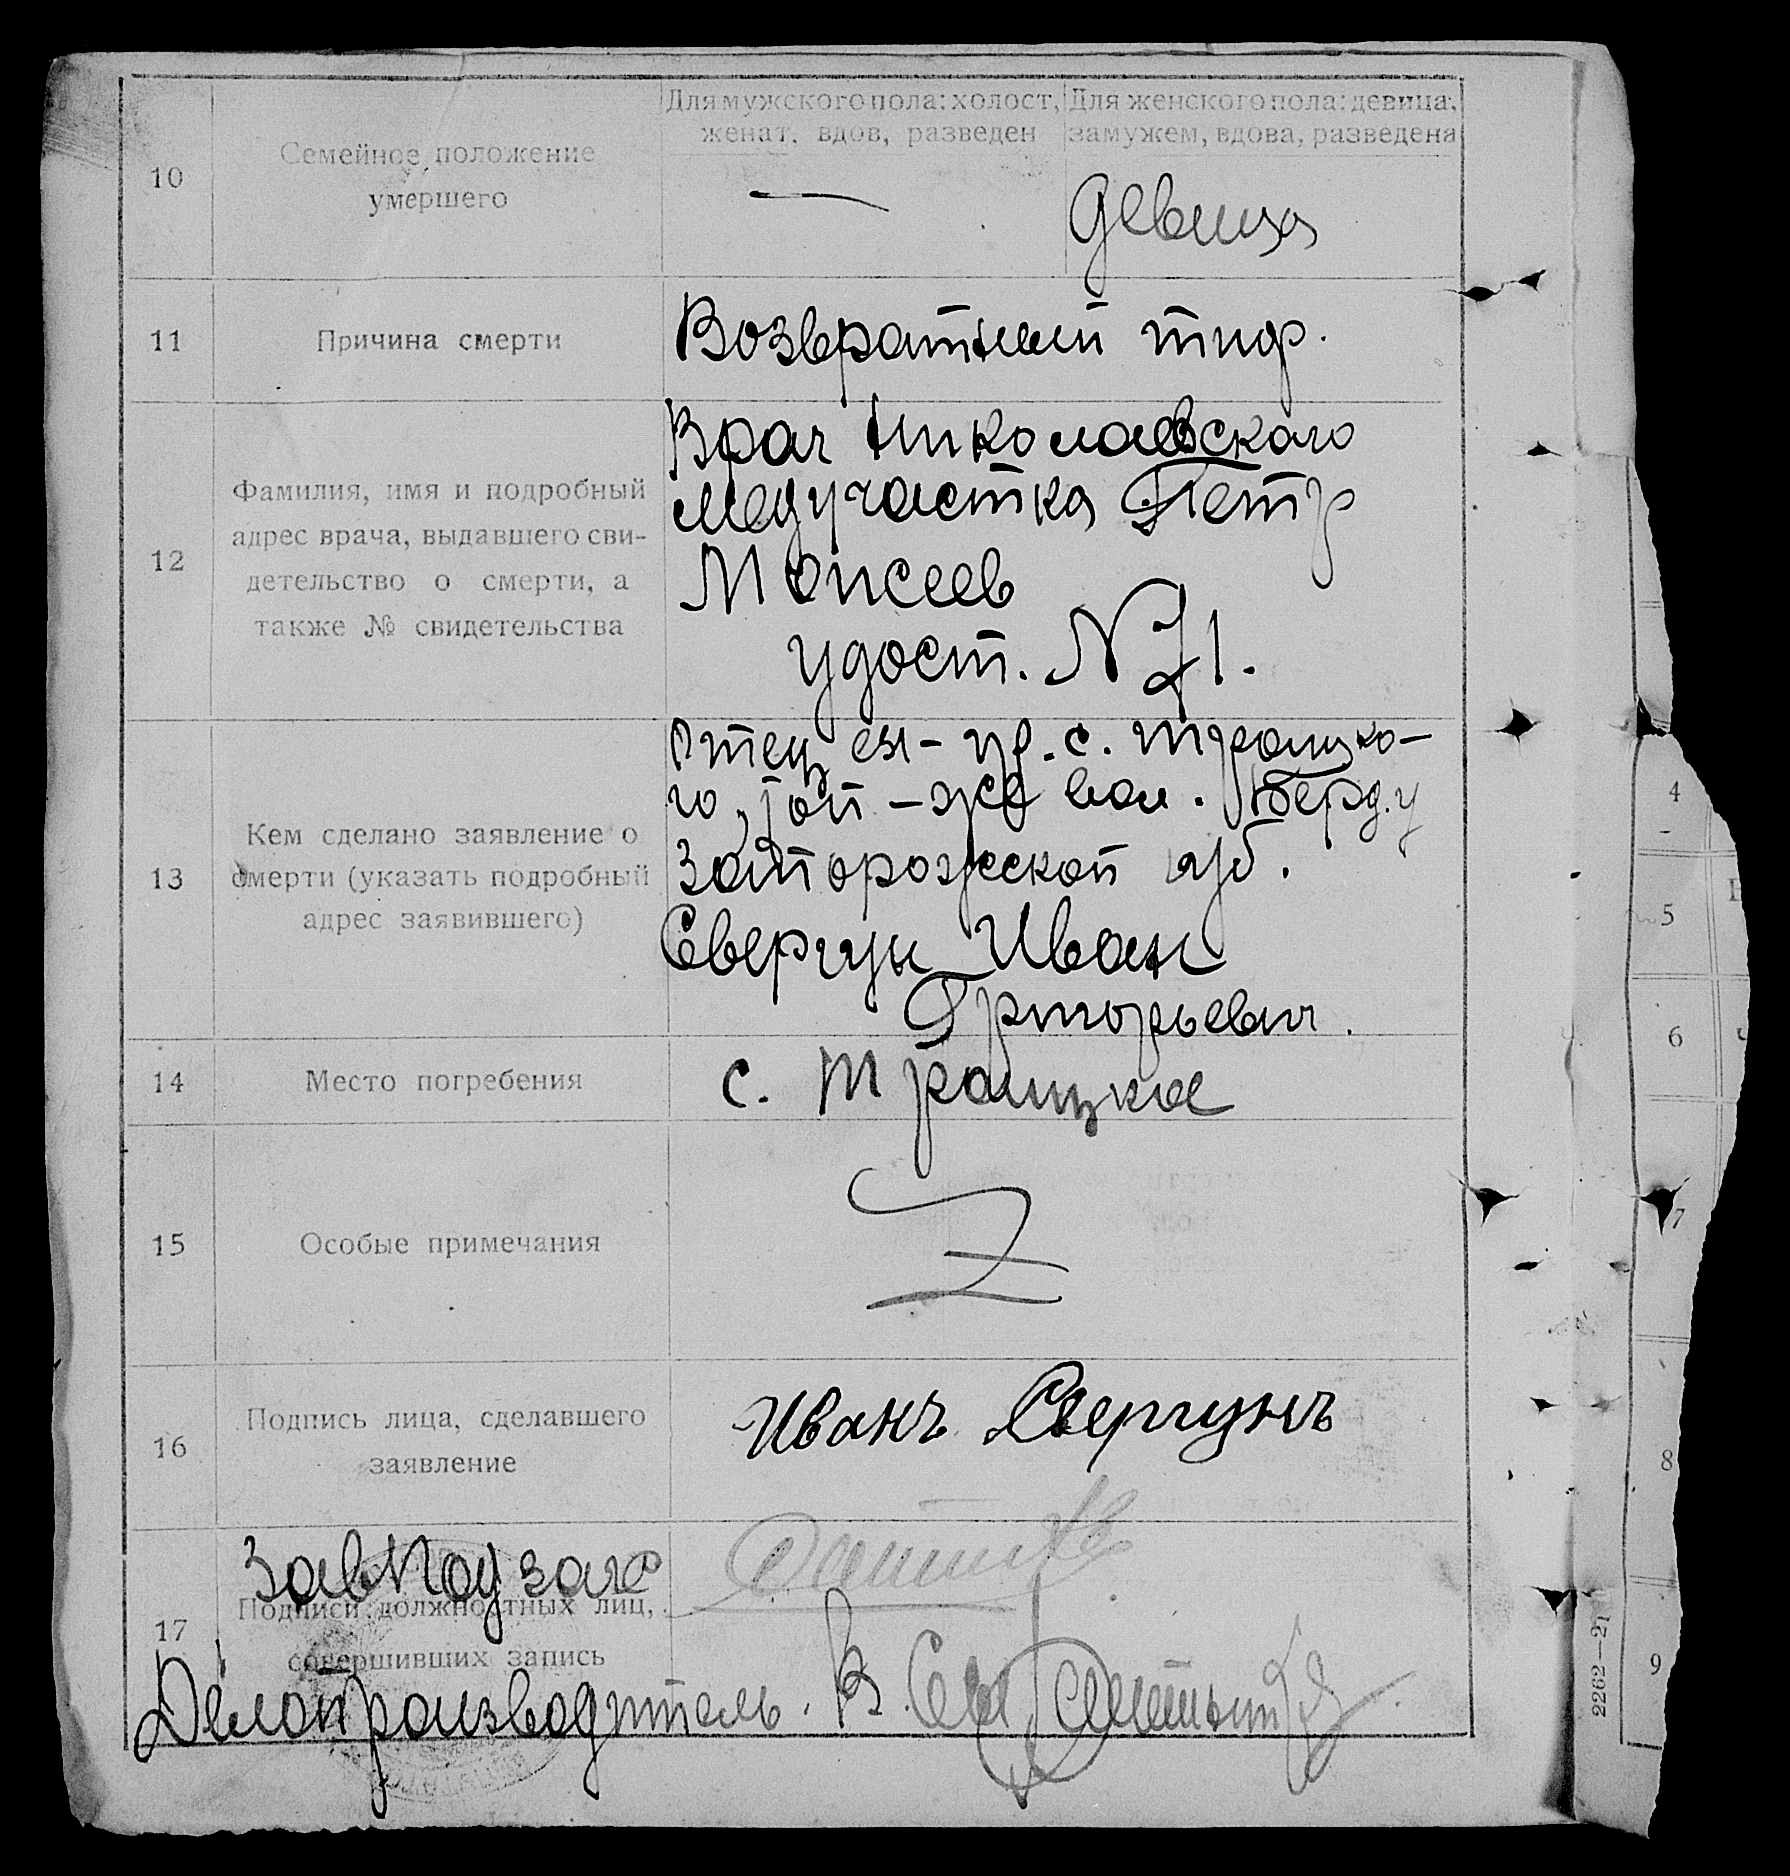 10
Семейное положение
умершего
Для мужского пола: холост,
женат, вдов, разведен
—
Для женского пола: девица,
замужем, вдова, разведена
девица
11
Причина смерти
Возвратный тиф.
12
Фамилия, имя и подробный
адрес врача, выдавшего сви-
детельство о смерти, а
также № свидетельства
Врач Николаевского
медучастка Петр
Моисеев
удост. N 71.
13
Кем сделано заявление о
смерти (указать подробный
адрес заявившего)
Отец ея - гр. с. Троицко-
го, той-же вол. Берд. у
Запорожской губ.
Свергун Иван
Григорьевич.
14
Место погребения
с. Троицкое
15
Особые примечания
16
Подпись лица, сделавшего
заявление
Иванъ Свергунъ
17
Подписи должностных лиц,
совершивших запись
Завподзагс
Делопроизводитель.
2262—21
4
5
6
7
8
9